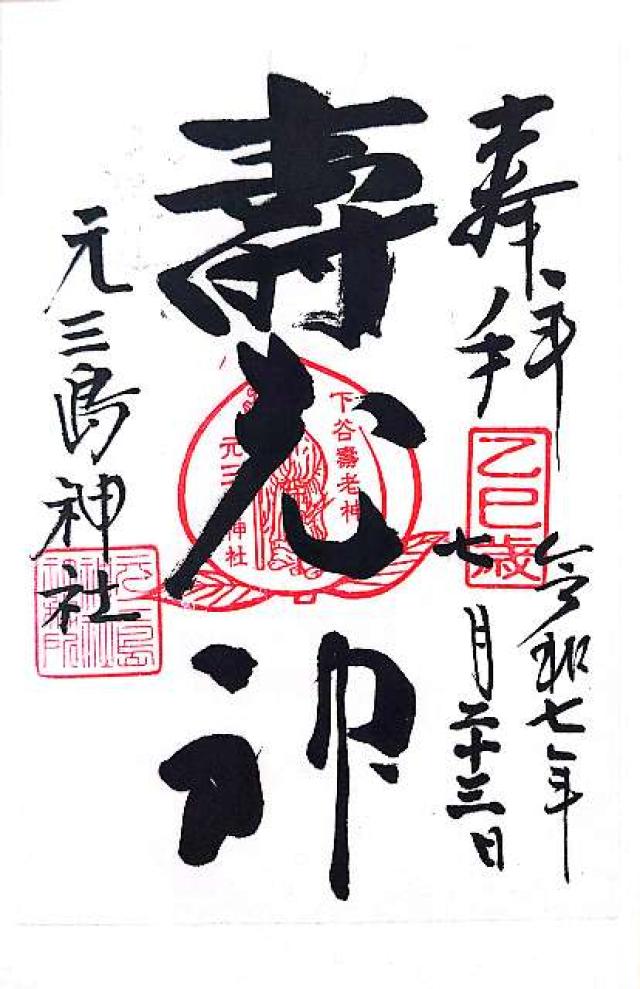 奉拝
乙巳歳
令和七年
七月二十三日
壽老神
下谷壽老神
元三神社
元三島神社
元三島神社社務所